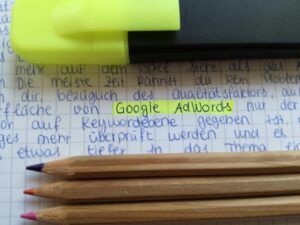 mehr auf dem Spiel steht als das
Die meiste Zeit kannst du kein
dir, bezüglich des Qualitätsfaktors, auf
fläche von Google AdWords nur der
or auf Keywordebene gegeben ist.
ges mehr überprüft werden und es
etwas tiefer in das Thema ein